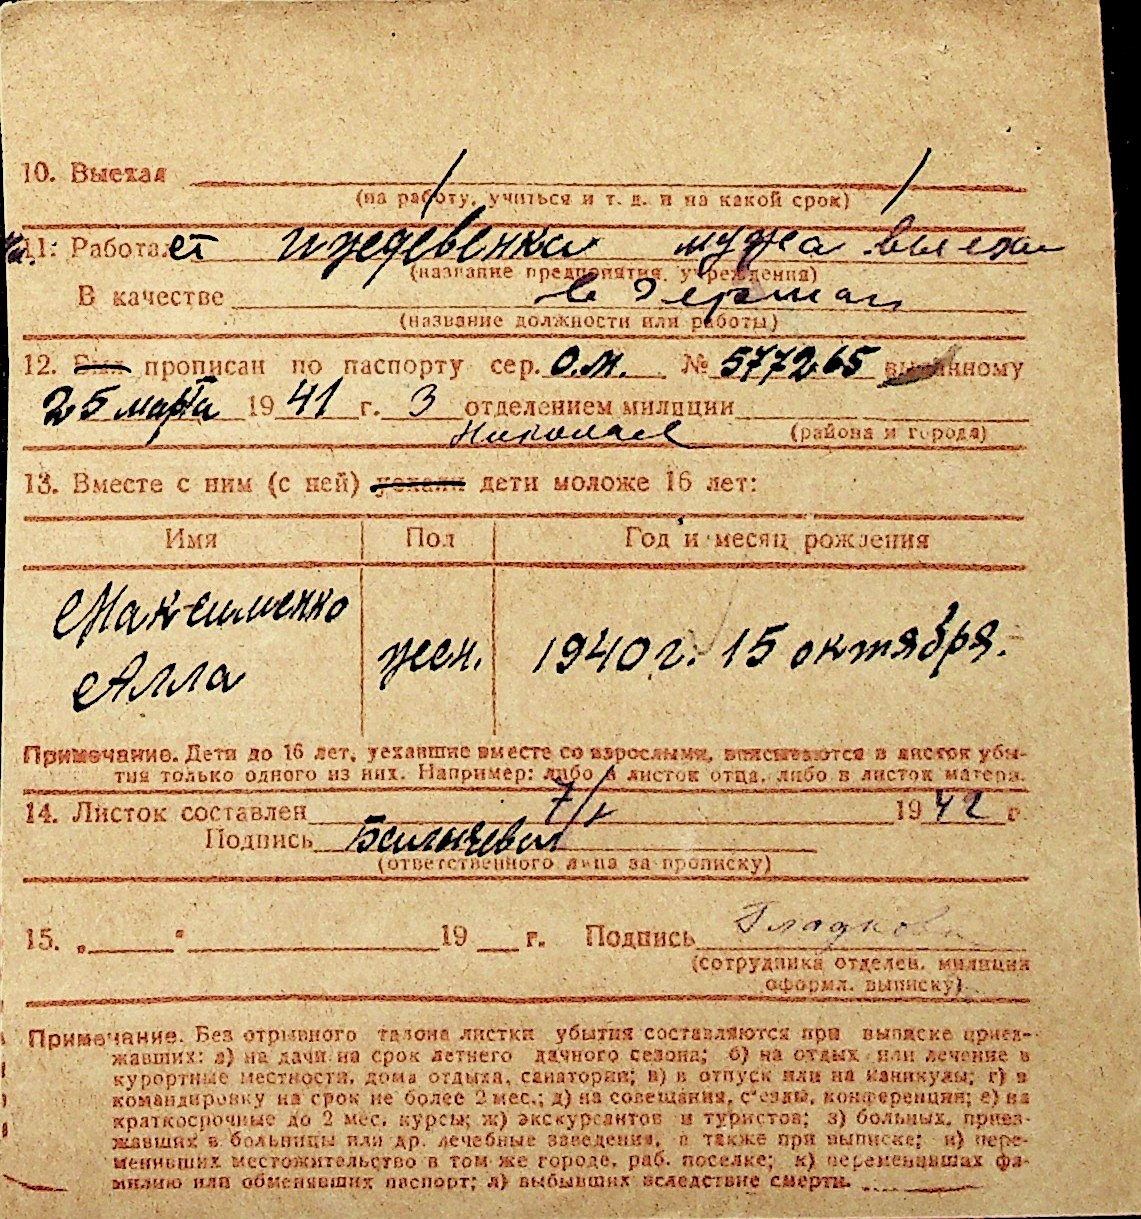 10. Выехал
(на работу, учиться и т. д. и на какой срок)
11. Работает иждевенка мужа выехал
(название предприятия, учреждения)
В качестве в Герман
(название должности или работы)
12. Был прописан по паспорту сер. О.М. № 577265 выданному
25 марта 1941 г. 3 отделением милиции
Николаев (района и города)
13. Вместе с ним (с ней) уехали дети моложе 16 лет:
Имя Пол Год и месяц рождения
Максименко
Алла жен. 1940 г. 15 октября.
Примечание. Дети до 16 лет, уехавшие вместе со взрослыми, вписываются в листок убы-
тия только одного из них. Например: либо в листок отца, либо в листок матери.
14. Листок составлен 7/I 1942 г
Подпись
(ответственного лица за прописку)
15. „ “ 19 г. Подпись Гладков
(сотрудника отделен. милиции
оформл. выписку)
Примечание. Без отрывного талона листки убытия составляются при выписке приез-
жавших: а) на дачи на срок летнего дачного сезона; б) на отдых или лечение в
курортные местности, дома отдыха, санатории; в) в отпуск или на каникулы; г) в
командировку на срок не более 2 мес.; д) на совещания, с'езды, конференции; е) на
краткосрочные до 2 мес. курсы; ж) экскурсантов и туристов; з) больных, приез-
жавших в больницы или др. лечебные заведения, а также при выписке; и) пере-
менивших местожительство в том же городе, раб. поселке; к) переменивших фа-
милию или обменявших паспорт; л) выбывших вследствие смерти.